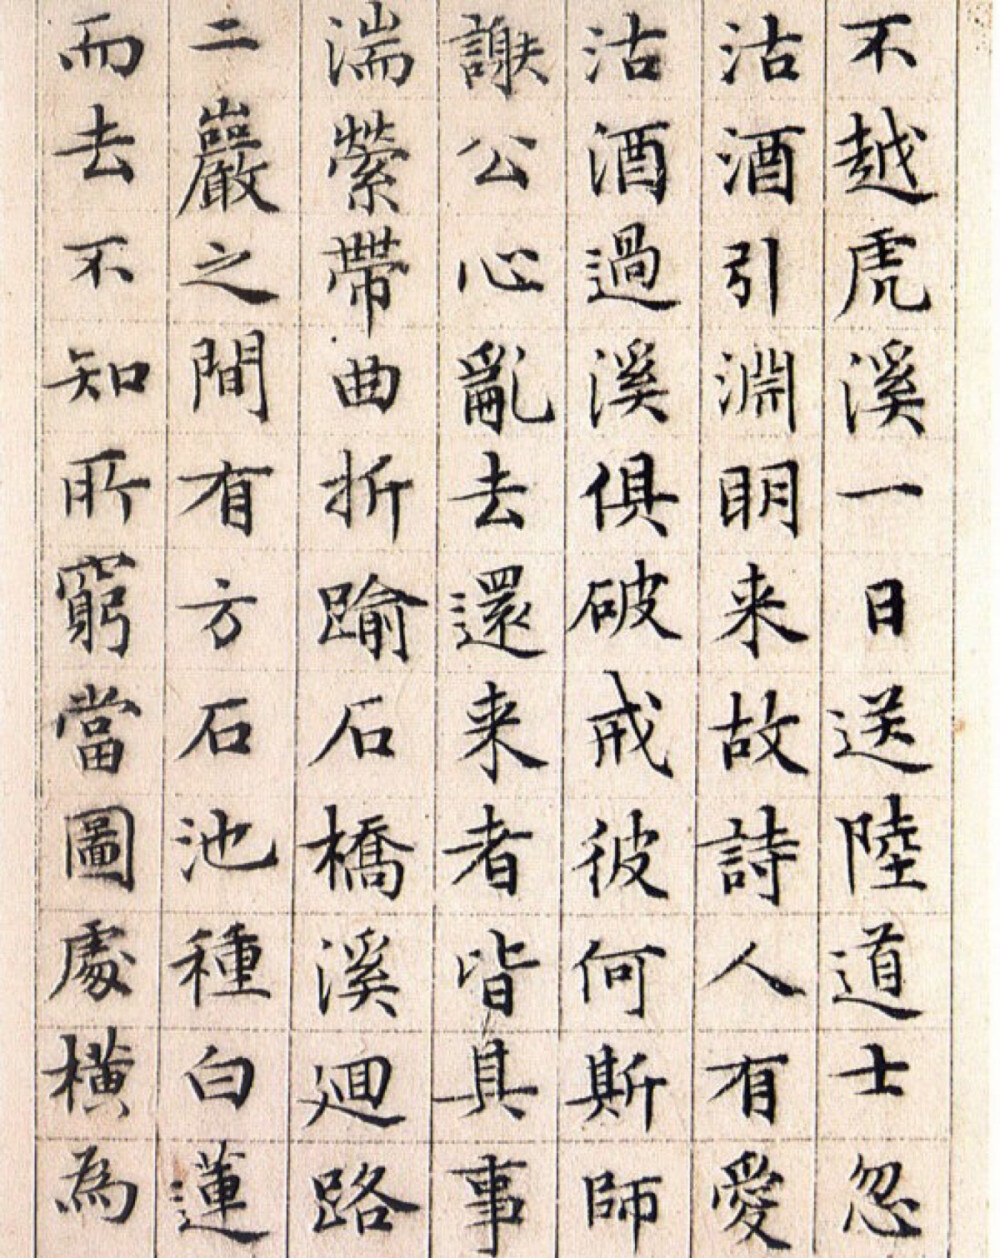 不越虎溪一日送陸道士忽
沽酒引淵明来故詩人有愛
沽酒過溪俱破戒彼何斯師
謝公心亂去還来者皆具事
湍縈帶曲折踰石橋溪迴路
二巖之間有方石池種白蓮
而去不知所窮當圖處橫為